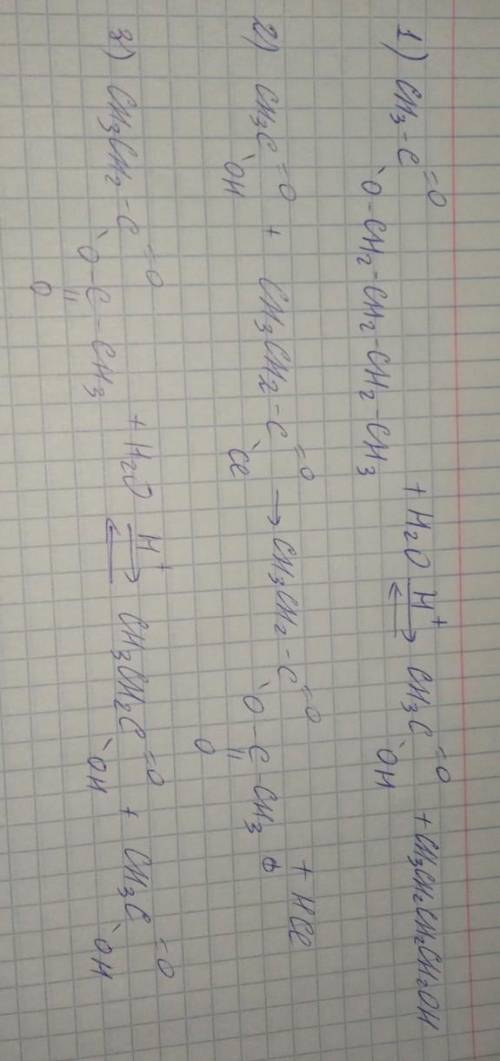 1) CH3-C=O
O-CH2-CH2-CH2-CH3 + H2O H+ ⇄ CH3C=O
OH + CH3CH2CH2CH2OH
2) CH3C=O
OH + CH3CH2-C=O
Cl → CH3CH2-C=O
O-C-CH3 + HCl
=
O
3) CH3CH2-C=O
O-C-CH3 + H2O H+ ⇄ CH3CH2C=O
=
O
OH + CH3C=O
OH